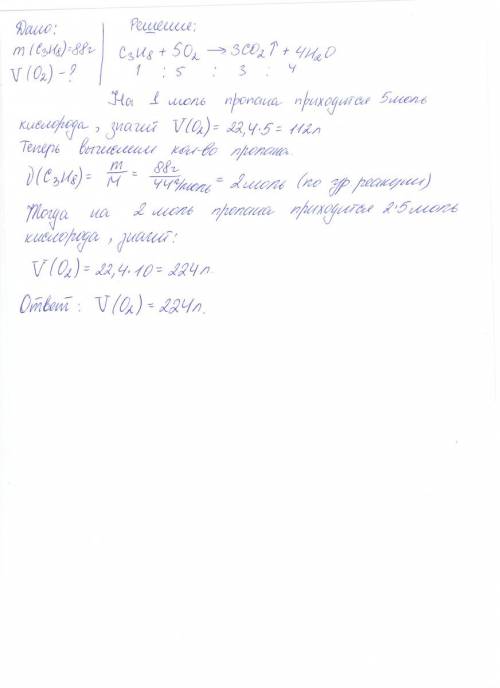 Дано:
m(C3H8)=88г
V(O2)-?
Решение:
C3H8 + 5O2 → 3CO2↑ + 4H2O
1 : 5 : 3 : 4
На 1 моль пропана приходится 5 моль
кислорода, значит V(O2) = 22,4·5 = 112л
Теперь вычислим кол-во пропана.
ν(C3H8) = m/M = 88г/44г/моль = 2 моль (по ур. реакции)
Тогда на 2 моль пропана приходится 2·5 моль
кислорода, значит:
V(O2) = 22,4·10 = 224 л.
Ответ: V(O2) = 224л.